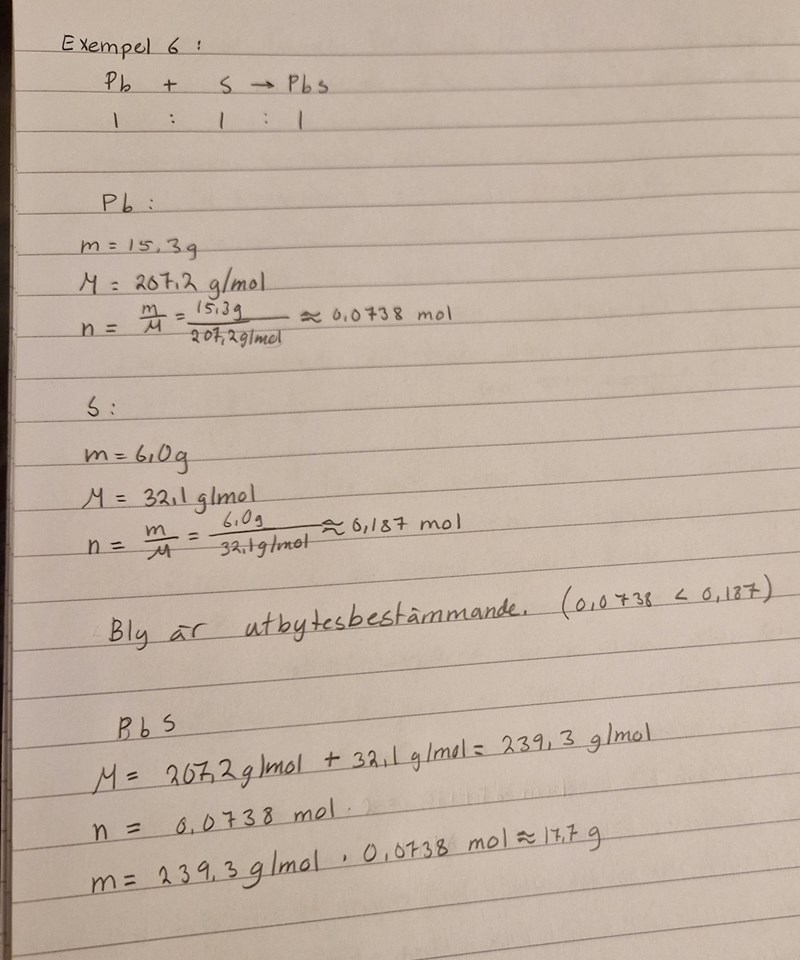 Exempel 6 :
Pb + S → Pbs
1 : 1 : 1
Pb :
m = 15,3g
M = 207,2 g/mol
n = m/M = 15,3g/207,2g/mol ≈ 0,0738 mol
S :
m = 6,0g
M = 32,1 g/mol
n = m/M = 6,0g/32,1g/mol ≈ 0,187 mol
Bly är utbytesbestämmande. (0,0738 < 0,187)
PbS
M = 207,2g/mol + 32,1 g/mol = 239,3 g/mol
n = 0,0738 mol.
m = 239,3 g/mol · 0,0738 mol ≈ 17,7 g